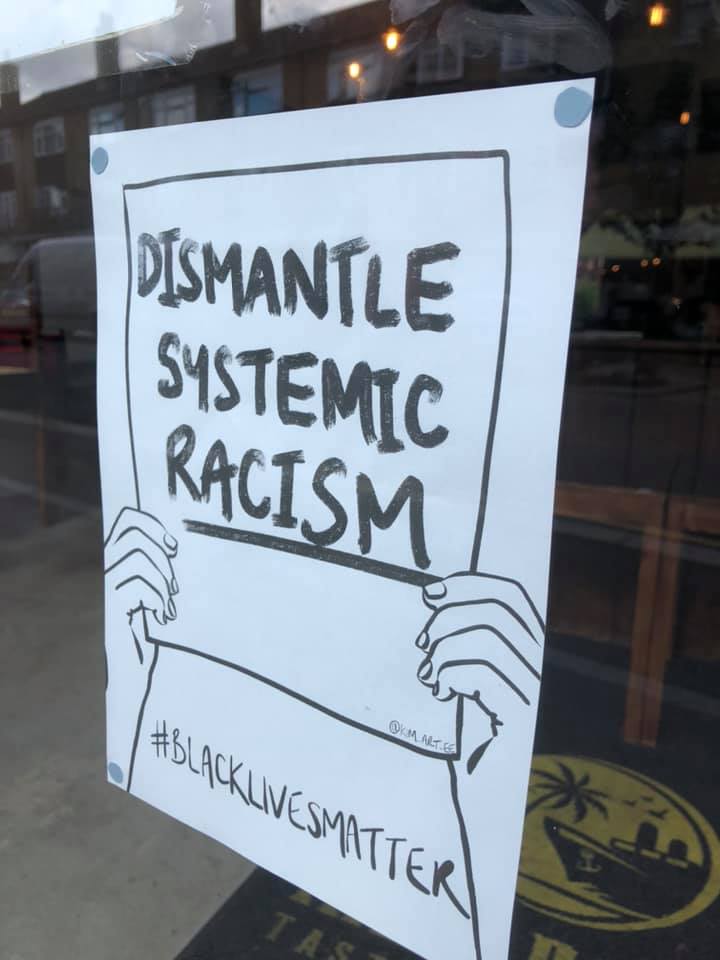 DISMANTLE
SYSTEMIC
RACISM
@KIM.ART.EE
#BLACKLIVESMATTER